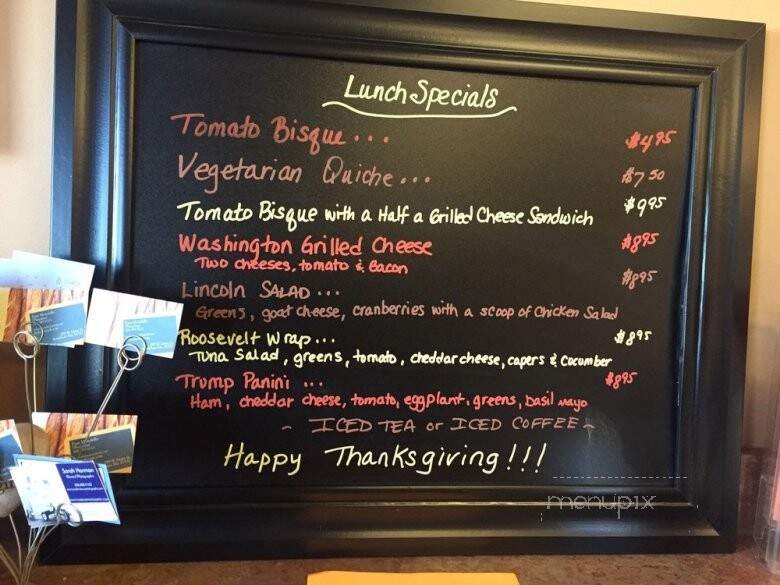 Lunch Specials
Tomato Bisque... $4.95
Vegetarian Quiche... $7.50
Tomato Bisque with a Half a Grilled Cheese Sandwich $9.95
Washington Grilled Cheese $8.95
Two cheeses, tomato & Bacon
Lincoln SALAD... $8.95
Greens, goat cheese, cranberries with a scoop of Chicken Salad
Roosevelt Wrap... $8.95
Tuna Salad, greens, tomato, cheddar cheese, capers & Cucumber
Trump Panini ... $8.95
Ham, cheddar cheese, tomato, eggplant, greens, basil mayo
~ ICED TEA or ICED COFFEE ~
Happy Thanksgiving!!!
menupix